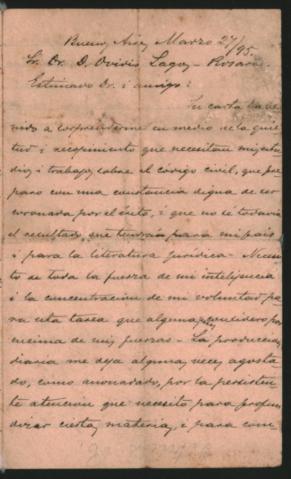 Buenos Aires, Marzo 27/95.
Sr. Dr. D. Ovidio Lagos - Rosario.
Estimado Dr. i amigo:
Su carta ha ve-
nido a sorprenderme en medio de la quie-
tud i recojimiento que necesitan mis estu-
dios i trabajos, sobre el código civil, que pre-
paro con una constancia digna de ser
coronada por el éxito, i que no sé todavia
el resultado, que tendrá para mi pais
i para la literatura juridica - Necesi-
to de toda la fuerza de mi intelijencia
i la concentracion de mi voluntad pa-
ra esta tarea que algunas considero por
encima de mis fuerzas - La produccion
diaria me deja algunas veces agosta-
do, como anonadado, por la persisten-
te atencion que necesito para profun-
dizar ciertas materias, i para com